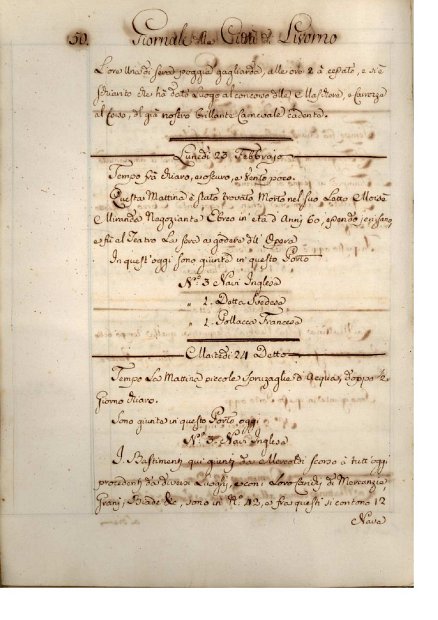 50. Giornale della Città di Livorno
L'ore Una di sera pioggia gagliarda, alle ore 2 à cessato, e si è
schiarito che hà dato luogo al concorso delle Maschere, e Carrozze
al Corso, del già nostro brillante Carnevale cadente.
Lunedì 23 Febbraio
Tempo frà chiaro, e oscuro, e vento poco.
Questa Mattina è stato trovato Morto nel suo Letto Moisè
Miranda Negoziante Ebreo in età d'Anni 60, essendo jeri sano
e fù al Teatro la sera a godere dell'Opera
In quest'oggi sono giunte in questo Porto
N.º 3 Navi Inglese
„ 1. Detta Svedese
„ 1. Pollacca Francese
Martedì 24 Detto
Tempo La Mattina piccole spruzaglie d'Acqua, doppo il
Giorno chiaro.
Sono giunte in questo Porto oggi
N.º 3. Navi Inglese
I Bastimenti qui giunti da Mercoldì scorso à tutt'oggi
procedenti da diversi Luoghi, e con i loro Carichi di Mercanzie
Grani, Biade &c, sono in N.º 42, e fra questi si contano 12
Nave